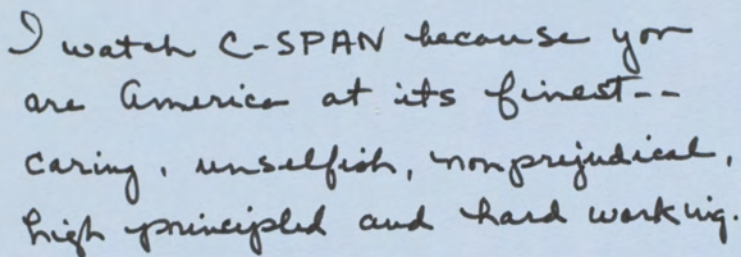 I watch C-SPAN because you
are America at its finest--
caring, unselfish, nonprejudical,
high principled and hard working.